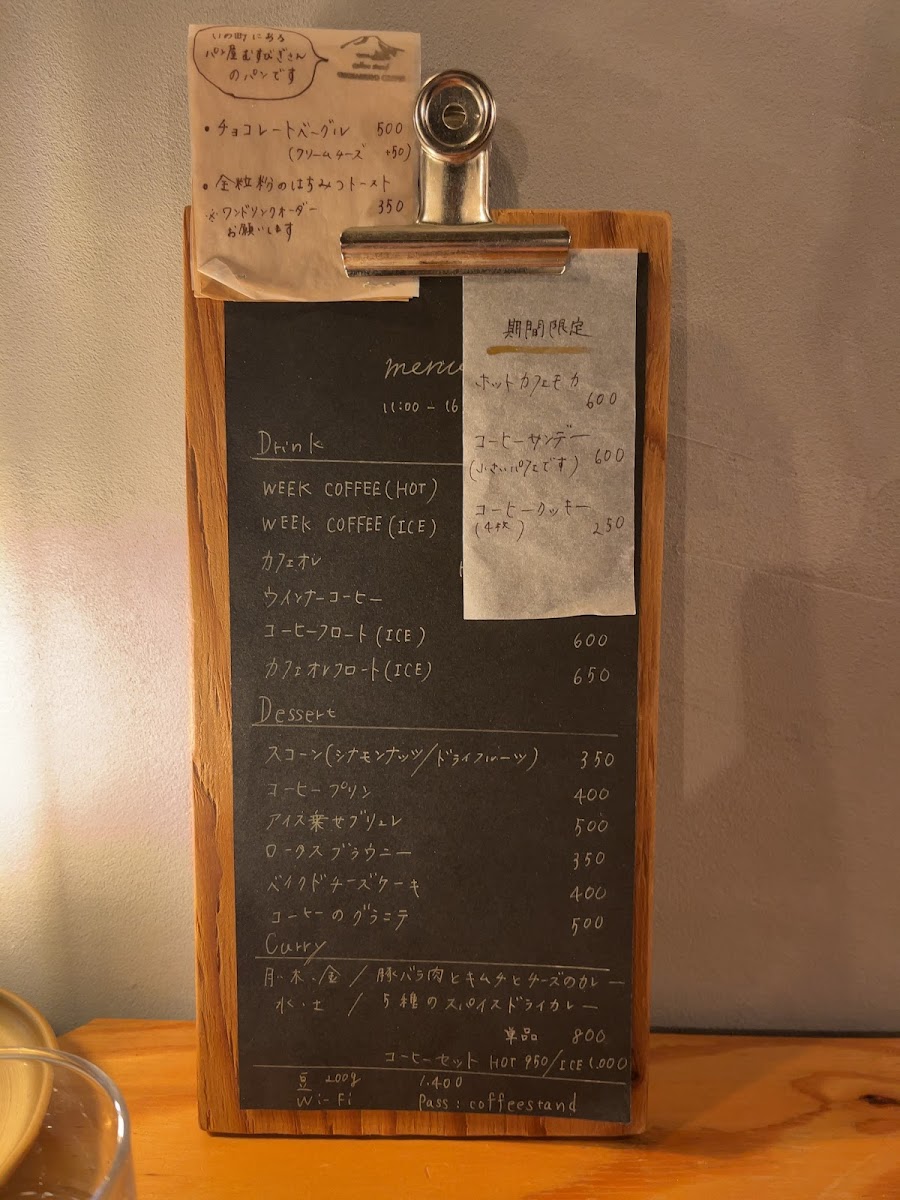 いの町にある
パン屋むすびぎさん
のパンです
coffee stand
・チョコレートベーグル 500
(クリームチーズ +50)
・全粒粉のはちみつトースト
350
※ワンドリンクオーダー
お願いします
期間限定
ホットカフェモカ
600
コーヒーサンデー
(小さいパフェです) 600
コーヒークッキー
(4枚) 250
menu
11:00 - 16
Drink
WEEK COFFEE(HOT)
WEEK COFFEE(ICE)
カフェオレ
ウインナーコーヒー
コーヒーフロート(ICE) 600
カフェオレフロート(ICE) 650
Dessert
スコーン(シナモンナッツ/ドライフルーツ) 350
コーヒープリン 400
アイス乗せブリュレ 500
ロータスブラウニー 350
ベイクドチーズケーキ 400
コーヒーのグラニテ 500
Curry
月・木・金 / 豚バラ肉とキムチとチーズのカレー
水・土 / 5種のスパイスドライカレー
単品 800
コーヒーセット HOT 950/ICE 1,000
豆 200g 1.400
Wi-Fi Pass : coffeestand